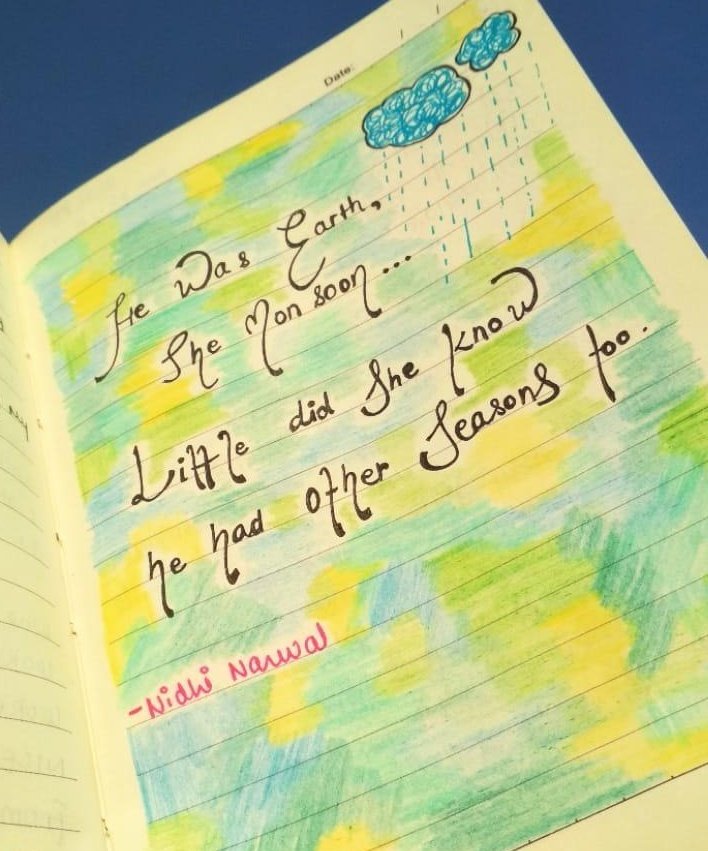 Date:
He Was Earth,
She Monsoon...
Little did She know
he had other Seasons too.
-Nidhi Narwal